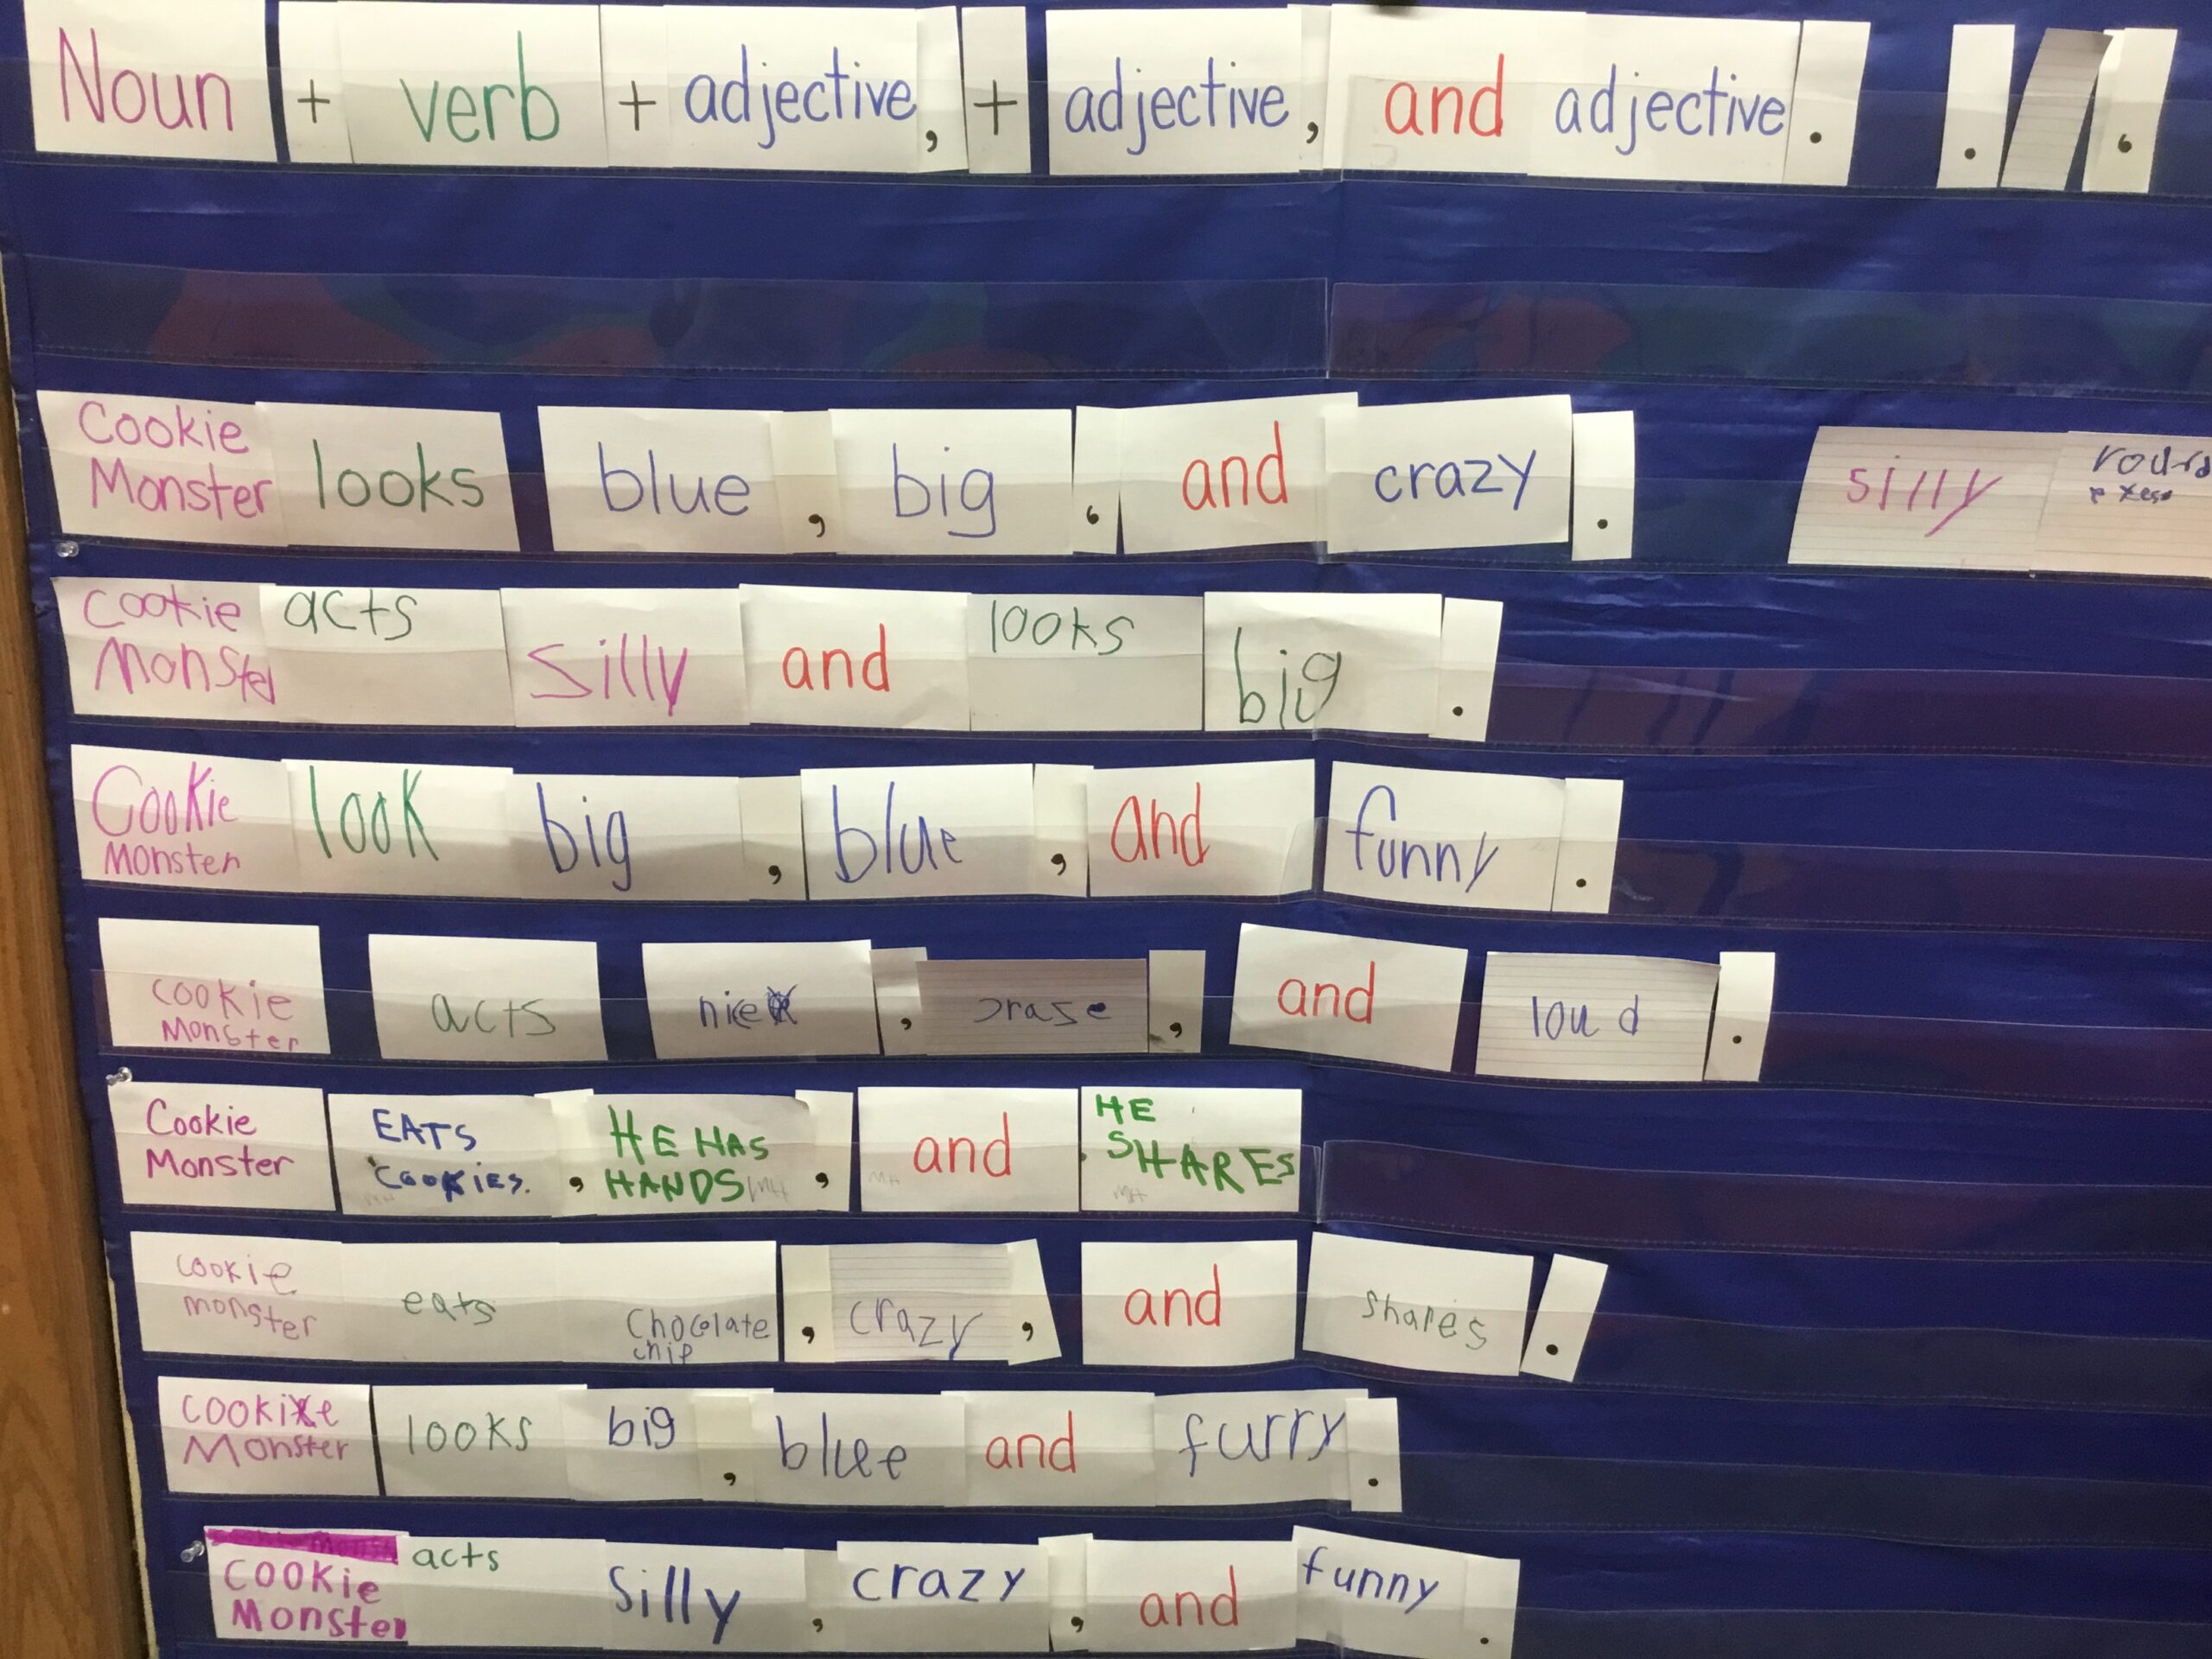 Noun + verb + adjective, + adjective, and adjective. . ,
Cookie Monster looks blue, big, and crazy. silly round eyes
Cookie Monster acts silly and looks big.
Cookie Monster look big, blue, and funny.
cookie Monster acts nice, crase, and loud.
Cookie Monster EATS COOKIES. , HE HAS HANDS MH, and MH HE SHARES MH
cookie monster eats Chocolate chip, crazy, and shares.
cookie Monster looks big, blue and furry.
cookie Monster acts silly, crazy, and funny.